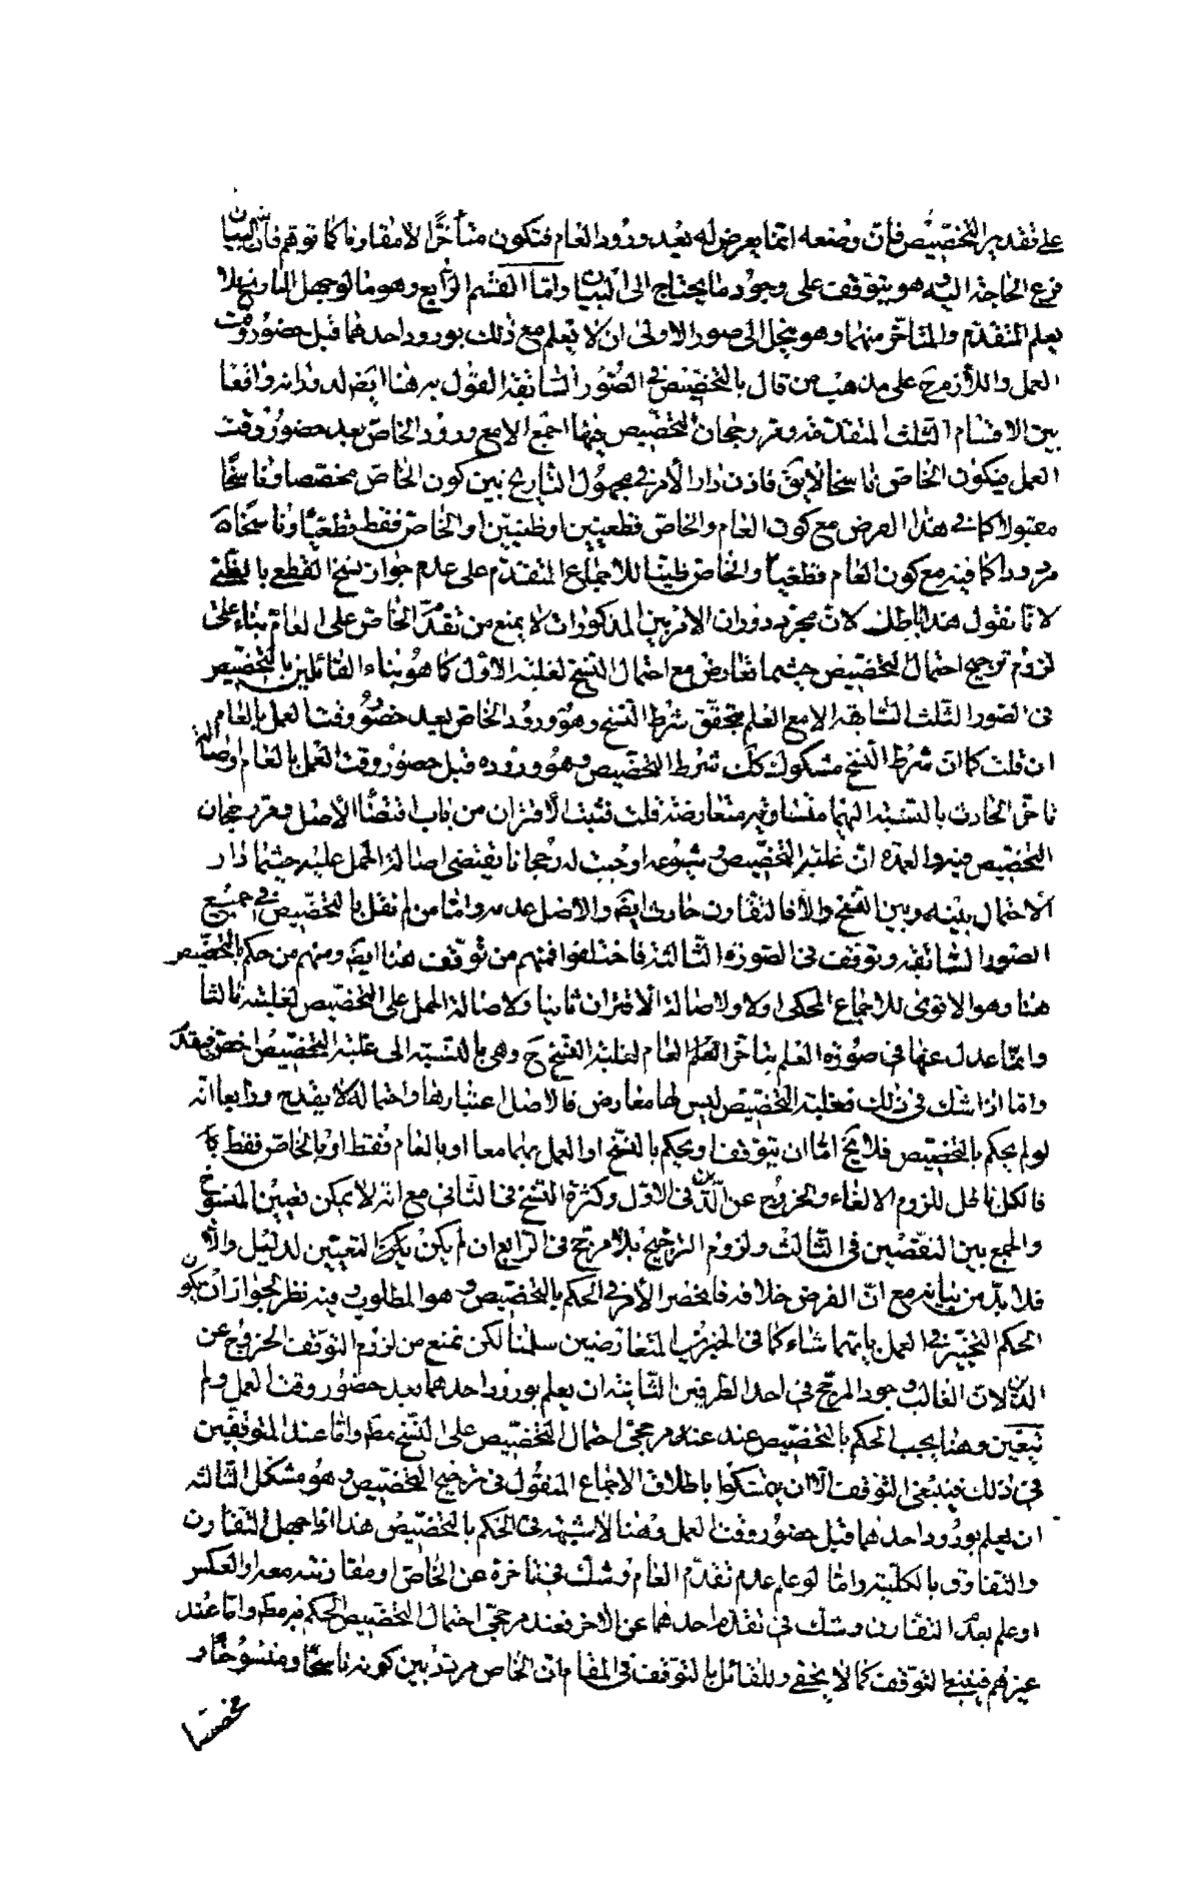 على تقدير التخصيص فإن وصفه انما يعرض له بعد ورود العام فتكون متأخرا لا مقارنا كما توهم فان البيان
فرع الحاجة اليه وهو يتوقف على وجود ما يحتاج الى البيان واما القسم الرابع وهو ما لو جهل التاريخ فلا
يعلم المتقدم والمتأخر منهما وهو ينحل الى صور الاولى ان لا يعلم مع ذلك بورود احدهما قبل حضور وقت
العمل واللازم ح على مذهب من قال بالتخصيص في الصور السابقة القول به هنا ايضا لدورانه واقعا
بين الاقسام الثلث المتقدمة وقد رجحان التخصيص فيها اجمع الا مع ورود الخاص بعد حضور وقت
العمل فيكون الخاص ناسخا لا يق فاذن دار الأمر في مجهول التاريخ بين كون الخاص مخصصا وناسخا
مقبولا كما في هذا الفرض مع كون العام والخاص قطعيين او ظنيين او الخاص فقط قطعيا وناسخا
مردودا كما فيه مع كون العام قطعيا والخاص ظنيا للاجماع المتقدم على عدم جواز نسخ القطع بالظن
لانا نقول هذا باطل لان مجرد دوران الامر بين المذكورات لا يمنع من تقدم الخاص على العام بناء على
لزوم ترجيح احتمال التخصيص حيثما تعارض مع احتمال النسخ لغلبة الاول كما هو بناء القائلين بالتخصيص
في الصور الثلث السابقة الا مع العلم بتحقق شرط النسخ وهو ورود الخاص بعد حضور وقت العمل بالعام
ان قلت كما ان شرط النسخ مشكوك كك شرط التخصيص وهو وروده قبل حضور وقت العمل بالعام واصالة
تاخر الحادث بالنسبة اليهما متساوية متعارضة قلت فثبت الاقتران من باب اقتضاء الأصل وقد رجحان
التخصيص فيه والعمدة ان غلبة التخصيص وشيوعه اوجبت له رجحانا يقتضي اصالة الحمل عليه حيثما دار
الاحتمال بينه وبين النسخ والا فالتقارن حادث ايضا والاصل عدمه واما من لم نقل بالتخصيص في جميع
الصور السابقة وتوقف في الصورة الثالثة فاختلفوا فمنهم من توقف هنا ايضا ومنهم من حكم بالتخصيص
هنا وهو الاقوى للاجماع المحكى اولا ولاصالة الاقتران ثانيا ولاصالة الحمل على التخصيص لغلبته ثالثا
وانما عدل عنها في صورة العلم بتاخر العام لغلبة النسخ ح وهي بالنسبة الى غلبة التخصيص اخص فيقدم
واما اذا شك في ذلك فغلبة التخصيص ليس لها معارض فالاصل اعتبارها واحتماله لا يقدح ورابعا انه
لو لم يحكم بالتخصيص فلا يخ اما ان يتوقف او يحكم بالنسخ او العمل بهما معا او بالعام فقط او بالخاص فقط
فالكل باطل للزوم الالغاء والخروج عن الدين في الاول وكثرة النسخ في الثاني مع انه لا يمكن تعيين المنسوخ
والجمع بين النقيضين في الثالث ولزوم الترجيح بلا مرجح في الرابع ان لم يكن التعيين لدليل والا
فلا بد من بيانه مع ان الفرض خلافه فانحصر الأمر في الحكم بالتخصيص وهو المطلوب وفيه نظر لجواز ان يكون
الحكم التخيير في العمل بايهما شاء كما في الخبرين المتعارضين سلمنا لكن نمنع من لزوم التوقف الخروج عن
الدين لان الغالب وجود المرجح في احد الطرفين الثانية ان يعلم بورود احدهما بعد حضور وقت العمل ولم
يتعين وهنا يجب الحكم بالتخصيص عند مرجحي احتمال التخصيص على النسخ مطلقا واما عند المتوقفين
في ذلك فينبغي التوقف الا ان يتمسكوا باطلاق الاجماع المنقول في ترجيح التخصيص وهو مشكل الثالثة
ان يعلم بورود احدهما قبل حضور وقت العمل وهنا لا شبهة في الحكم بالتخصيص هذا اذا جهل التقارن
والتفارق بالكلية واما لو علم عدم تقدم العام وشك في تاخره عن الخاص او مقارنته معه او العكس
او علم بعدم التقارن وشك في تقدم احدهما عن الاخر فعند مرجحي احتمال التخصيص الحكم فيه مط واما عند
غيرهم فينبغي التوقف كما لا يخفى وللقائل بالتوقف في المقام ان الخاص مردد بين كونه ناسخا ومنسوخا و
مخصصا